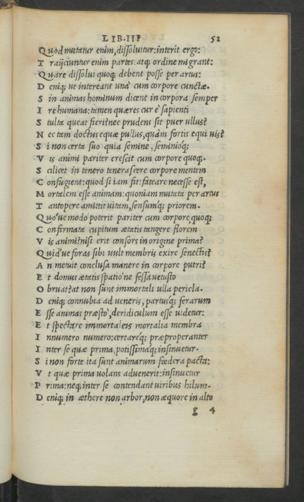 LIB. III 52
Quod mutatur enim, dissoluitur: interit ergo:
Traijciuntur enim partes: atq; ordine migrant:
Quare dissolui quoq; debent posse per artus:
Deniq; ut intereant una cum corpore cunctæ.
Sin animas hominum dicent in corpora semper
Ire humana: tamen quæres cur è sapienti
Stulta queat fieri: nec prudens sit puer ullus?
Nec tam doctus equæ pullus, quàm fortis equi uis?
Si non certa suo quia semine, seminioq;
Vis animi pariter crescit cum corpore quoq.
Scilicet in tenero tenerascere corpore mentem
Confugient: quod si iam sit: fateare necesse est,
Mortalem esse animam: quoniam mutata per artus
Tantopere amittit uitam, sensumq; priorem.
Quo'ue modo poterit pariter cum corpore quoq;
Confirmata cupitum ætatis tangere florem
Vis animi: nisi erit consors in origine prima?
Quid'ue foras sibi uult membris exire senectis?
An metuit conclusa manere in corpore putri?
Et domus ætatis spatio ne fessa uetusto
Obruat? at non sunt immortali ulla pericla.
Deniq; connubia ad ueneris, partusq; ferarum
Esse animas præsto, deridiculum esse uidetur:
Et spectare immortales mortalia membra
Innumero numero: certareq; præproperanter
Inter se quæ prima, potissimaq; insinuetur.
Si non forte ita sunt animarum fœdera pacta:
Vt quæ prima uolans aduenerit: insinuetur
Prima: neq; inter se contendant uiribus hilum.
Deniq; in æthere non arbor, non æquore in alto
g 4